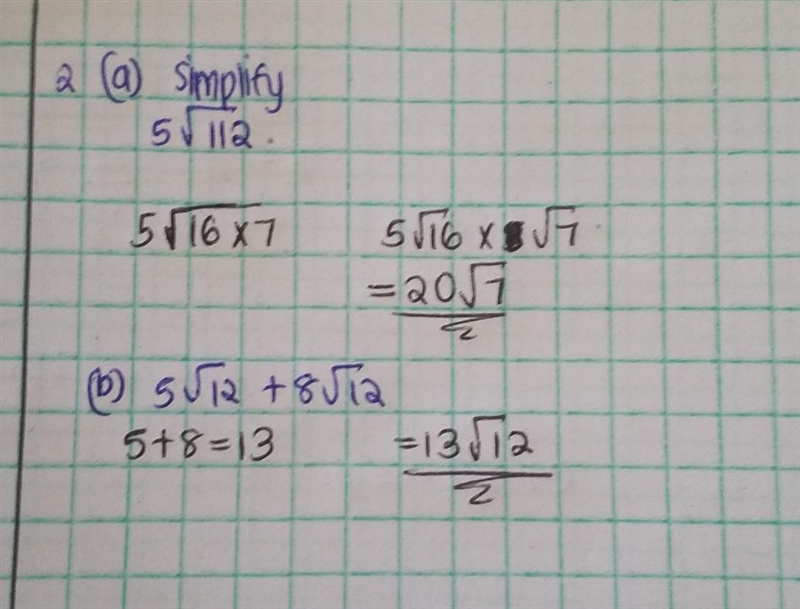 2 (a) Simplify
5√112.
5√16×7 5√16 × √7
= 20√7
(b) 5√12 + 8√12
5+8=13 =13√12